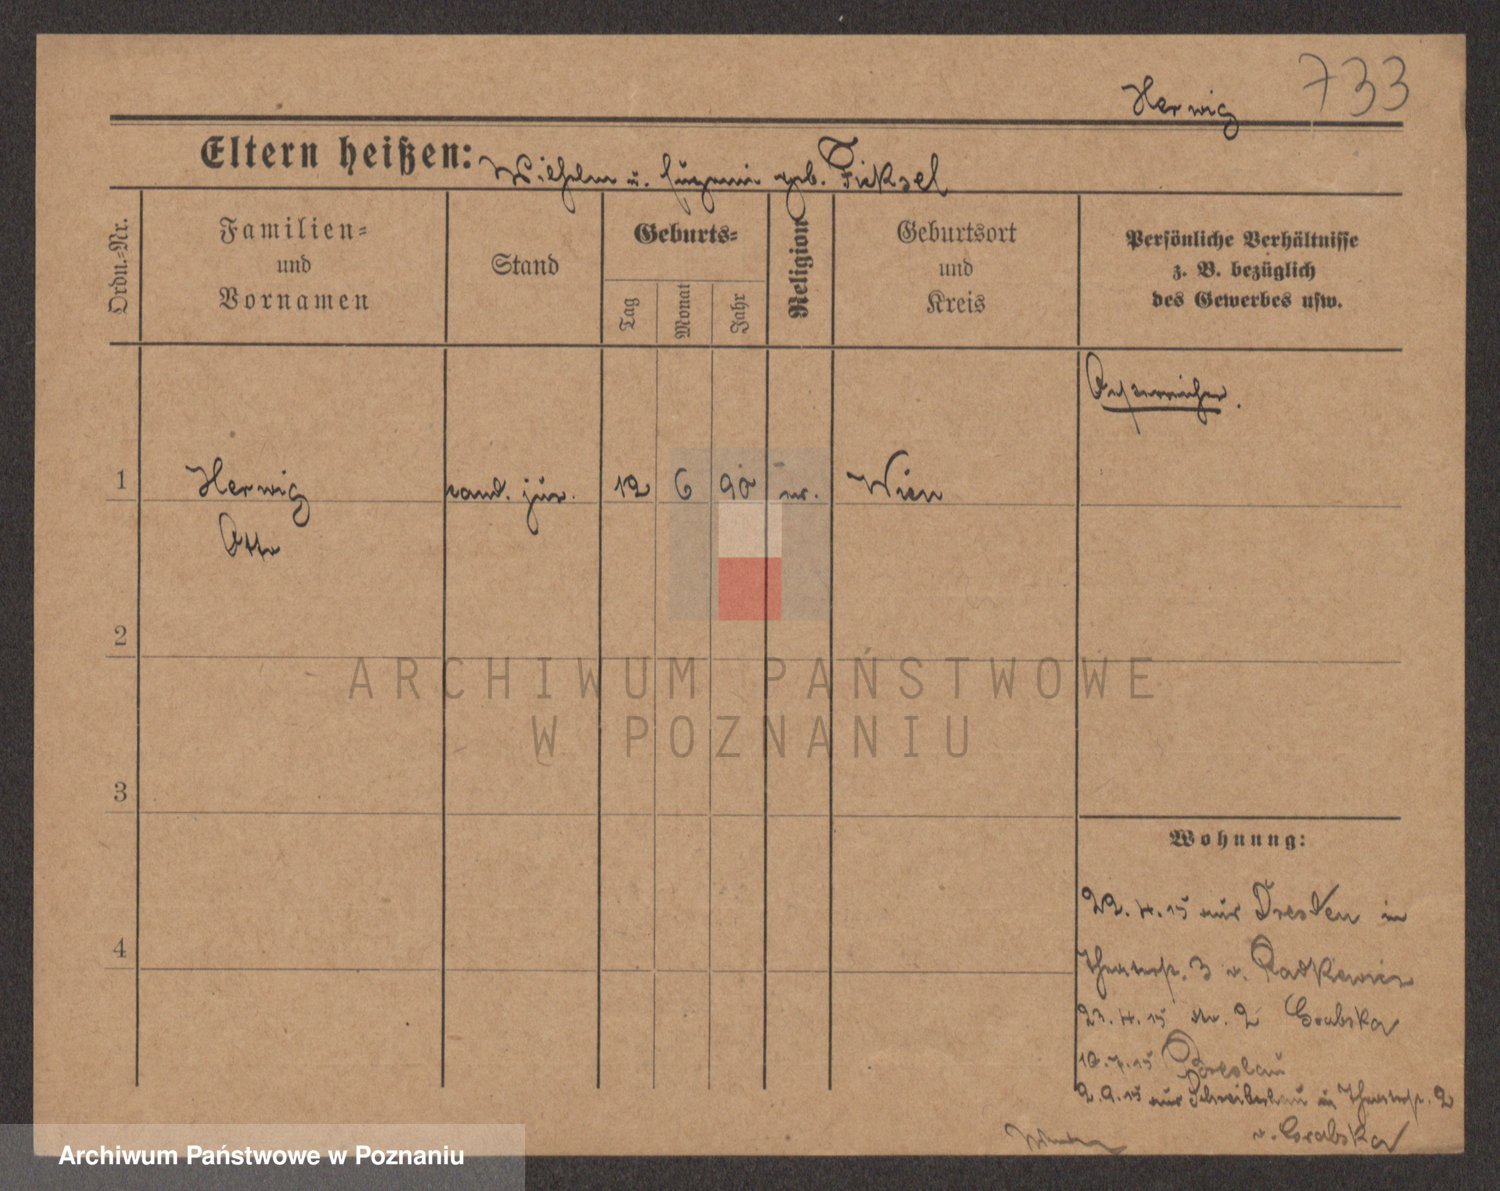 733
Herwig
Eltern heißen: Wilhelm u. Eugenie geb. Fieksel
Ordn.=Nr.
Familien=
und
Vornamen
Stand
Geburts=
Tag
Monat
Jahr
Religion
Geburtsort
und
Kreis
Persönliche Verhältnisse
z. B. bezüglich
des Gewerbes usw.
Österreicher.
1 Herwig cand. jur. 12 6 90 Wien
Otto
2
3
4
Wohnung:
22.4.15 aus Dresden in
Theaterstr. 3 v. Radkewicz
23.4.15 Nr. 2 Grabska
10.7.15 Breslau
2.9.15 aus Schreiberhau in Theaterstr. 2
v. Grabska
ARCHIWUM PAŃSTWOWE
W POZNANIU
Archiwum Państwowe w Poznaniu